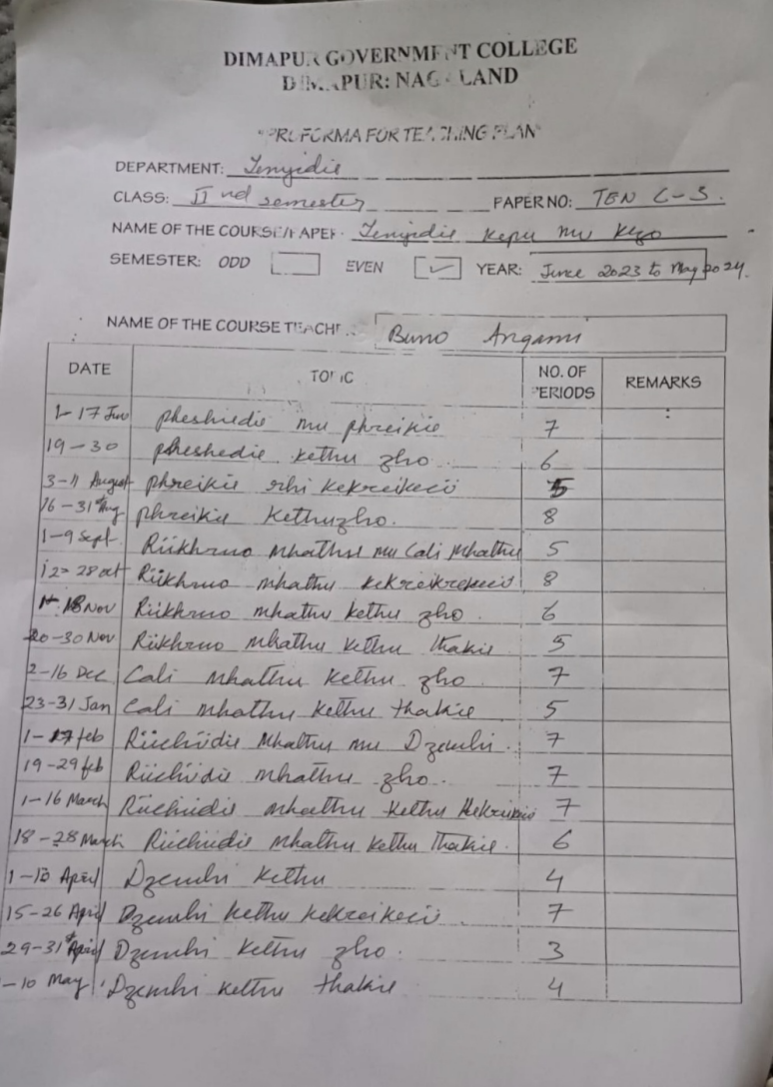 DIMAPUR GOVERNMENT COLLEGE
DIMAPUR: NAGALAND
"PROFORMA FOR TEACHING PLAN"
DEPARTMENT: Tenyidie
CLASS: IInd semester PAPER NO: TEN C-3.
NAME OF THE COURSE/PAPER: Tenyidie Kepu mu Kezo
SEMESTER: ODD EVEN ✓ YEAR: June 2023 to May 2024.
NAME OF THE COURSE TEACHER: Buno Angami
DATE TOPIC NO. OF PERIODS REMARKS
1-17 Jun pheshüdie mu phreikie 7
19-30 pheshedie kethu zho. 6
3-11 August phreikie rhi kekreikecü 5
16-31 Aug phreikie Kethuzho. 8
1-9 Sept. Rükhruo Mhathu mu Cali Mhathu 5
12-28 oct Rükhruo mhathu 8
1-18 Nov Rükhruo mhathu kethu zho. 6
20-30 Nov Rükhruo mhathu kethu thakie 5
2-16 Dec Cali mhathu kethu zho. 7
23-31 Jan Cali mhathu kethu thakie 5
1-17 feb Rüchüdie Mhathu mu Dzemhi. 7
19-29 feb Rüchüdie mhathu zho. 7
1-16 March Rüchüdie mhathu kethu 7
18-28 March Rüchüdie mhathu kethu thakie. 6
1-10 April Dzemhi kethu 4
15-26 April Dzemhi kethu kekreikecü. 7
29-31st April Dzemhi kethu zho. 3
-10 May Dzemhi kethu thakie 4